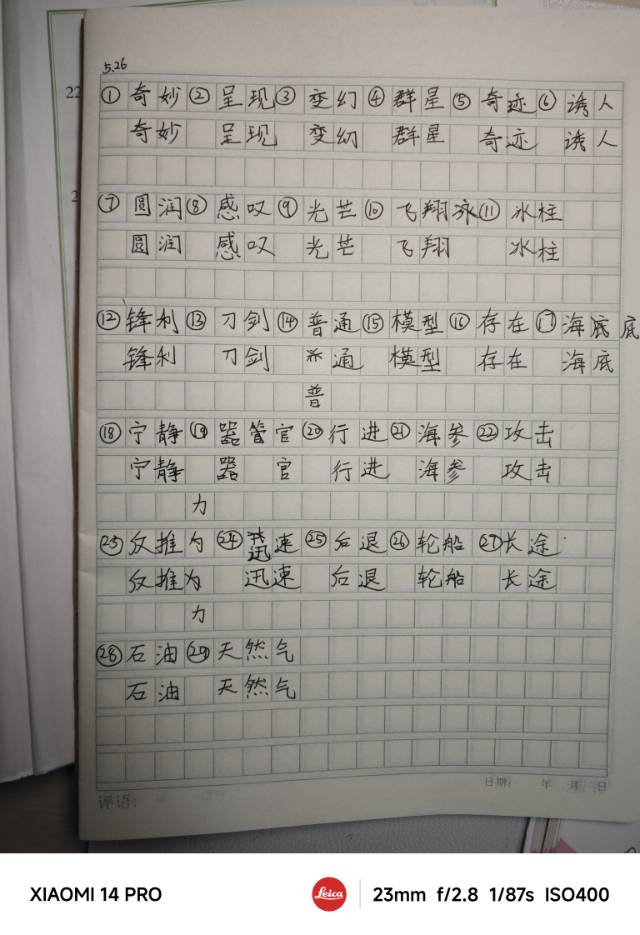 22
5.26
①奇妙②呈现③变幻④群星⑤奇迹⑥诱人
奇妙 呈现 变幻 群星 奇迹 诱人
⑦圆润⑧感叹⑨光芒⑩飞翔泳⑪水柱
圆润 感叹 光芒 飞翔 水柱
⑫锋利⑬刀剑⑭普通⑮模型⑯存在⑰海底底
锋利 刀剑 通 模型 存在 海底
普
⑱宁静⑲器管官⑳行进㉑海参㉒攻击
宁静 器 官 行进 海参 攻击
力
㉓反推为㉔迅速㉕后退㉖轮船㉗长途
反推为 迅速 后退 轮船 长途
力
㉘石油㉙天然气
石油 天然气
日期: 年 月 日
评语:
XIAOMI 14 PRO
Leica
23mm f/2.8 1/87s ISO400